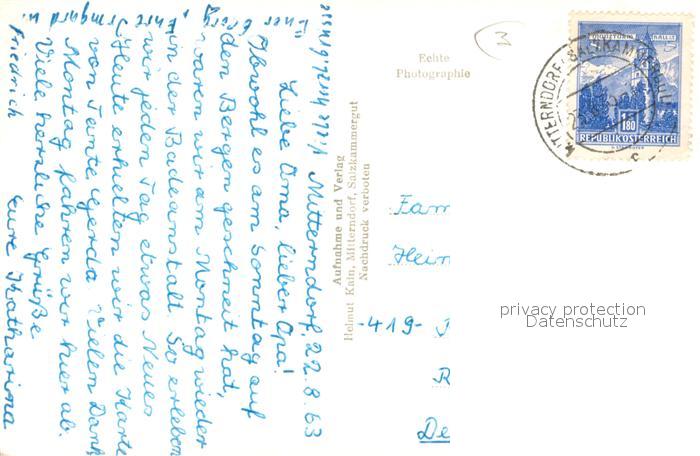 Mitterndorf, 22.8.63
Liebe Oma, lieber Opa!
Obwohl es am Sonntag auf
den Bergen geschneit hat,
waren wir am Montag wieder
in der Badeanstalt. So erleben
wir jeden Tag etwas Neues
Heute erhielten wir die Karte
von Tante Gerda. Vielen Dank
Montag fahren wir hier ab.
Viele herzliche Grüße
Eure Katharina
Friedrich
Eure Irmgard u.
Euer Georg
Aufnahme und Verlag
Helmut Kain, Mitterndorf, Salzkammergut
Nachdruck verboten
Echte
Photographie
3
1.80
REPUBLIK ÖSTERREICH
MITTERNDORF SALZKAMMERGUT
Fam
Hein
-419-
R
De
privacy protection
Datenschutz